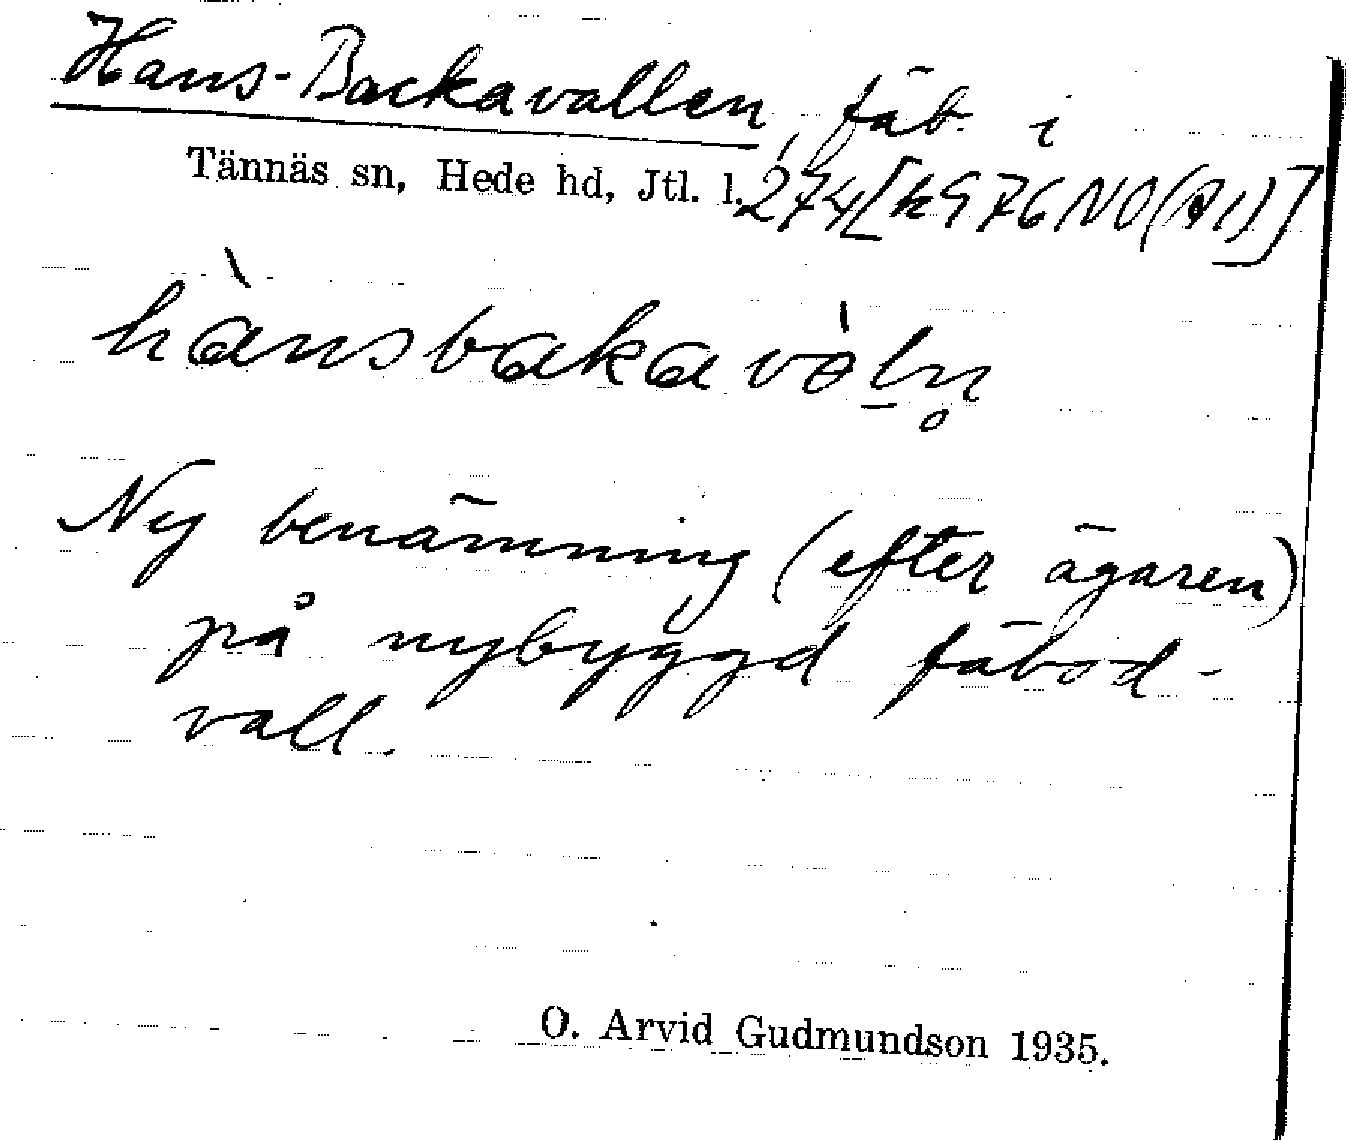 Hans-Backavallen, fäb. i
Tännäs sn, Hede hd, Jtl. l. 274 [k 976 NO (A1)]
hànsbakavòln̥
Ny benämning (efter ägaren)
på nybyggd fäbod-
vall.
O. Arvid Gudmundson 1935.